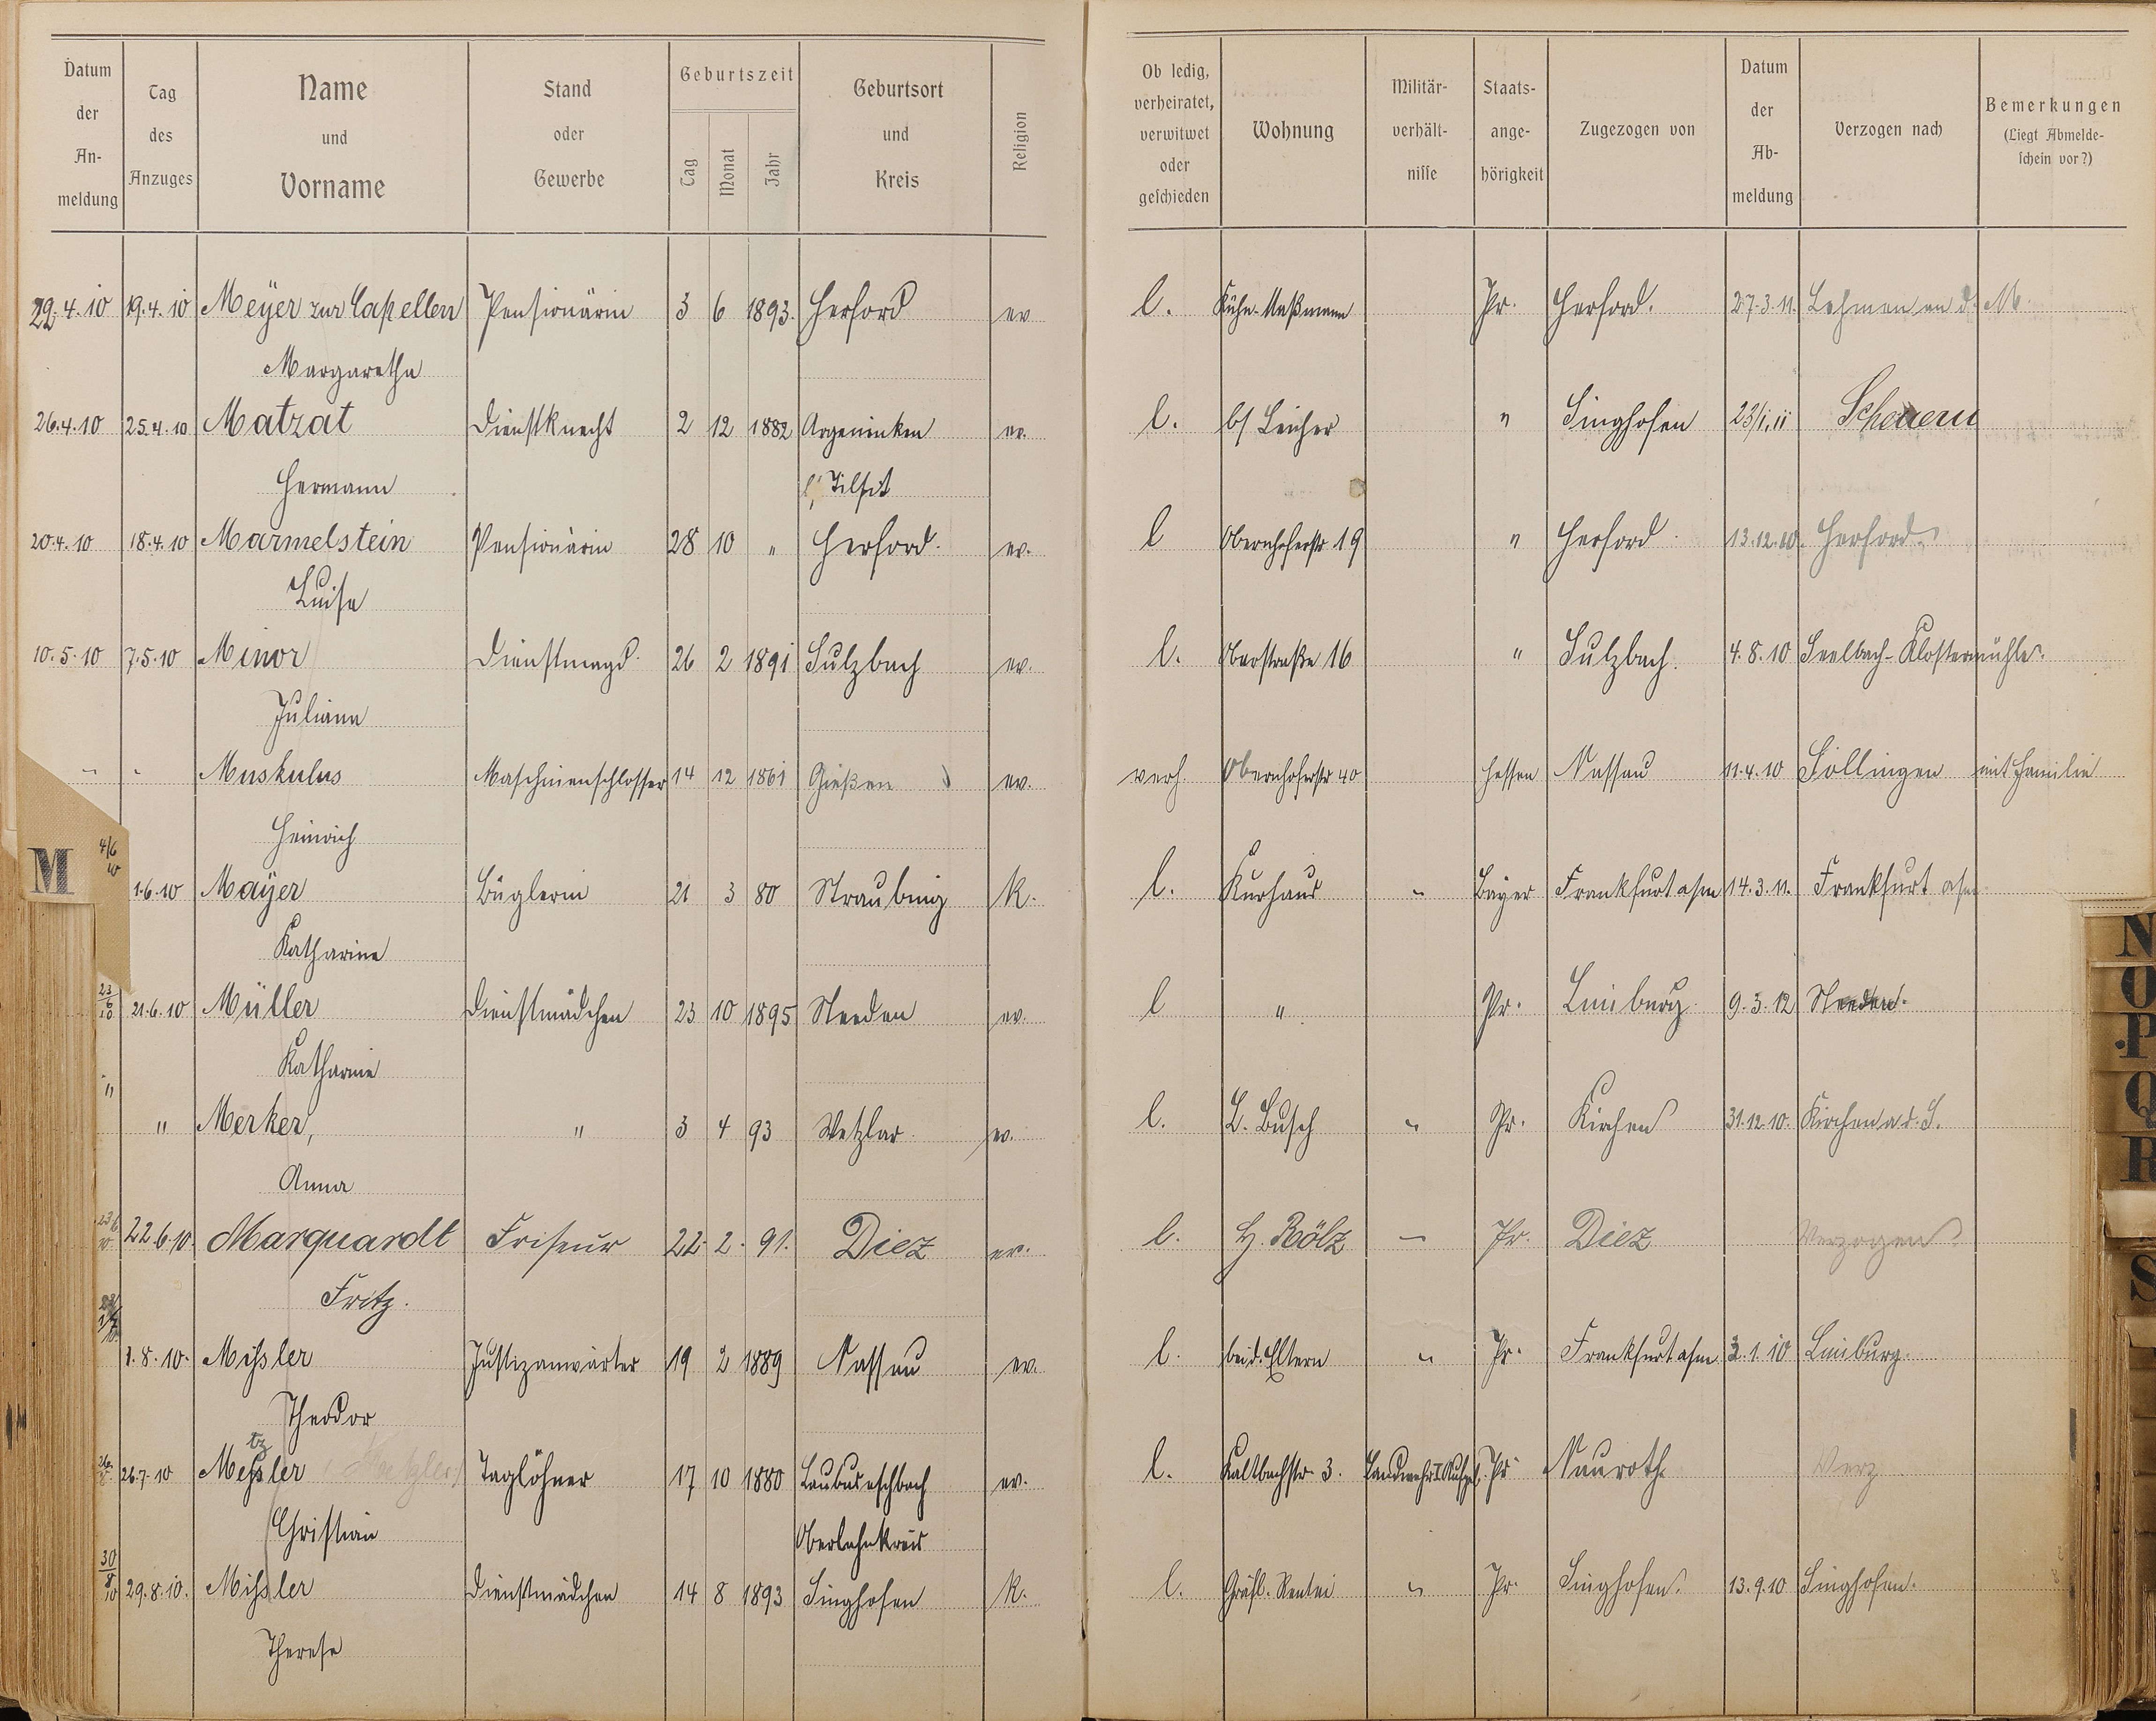 Datum der An-meldung | Tag des Anzuges | Name und Vorname | Stand oder Gewerbe | Geburtszeit Tag Monat Jahr | Geburtsort und Kreis | Religion | Ob ledig, verheiratet, verwitwet oder geschieden | Wohnung | Militär-verhält-nisse | Staats-ange-hörigkeit | Zugezogen von | Datum der Ab-meldung | Verzogen nach | Bemerkungen (Liegt Abmelde-schein vor?)
29.4.10 19.4.10 Meÿer zur Capellen Pensionärin 3 6 1893. Herford ev l. Kühn-Maßmann Pr. Herford. 27.3.11. Lehmen an d. M.
Margaretha
26.4.10 25.4.10 Matzat Dienstknecht 2 12 1882 Argeninken ev. l. b/ Leicher " Singhofen 23/1.11 Scheuern
Hermann b/ Tilsit
20.4.10 18.4.10 Marmelstein Pensionärin 28 10 " Herford. ev. l Obernhoferstr 19 " Herford 13.12.10. Herford
Luise
10.5.10 7.5.10 Minor Dienstmagd 26 2 1891 Sulzbach ev. l. Oberstraße 16 " Sulzbach. 4.8.10 Seelbach-Klostermühle.
Juliane
- - Muskulus Maschinenschlosser 14 12 1861 Gießen ev. verh. Obernhoferstr 40 Hessen Nassau 11.4.10 Söllingen mit Familie
Heinrich
M 4/6 10 1.6.10 Maÿer Büglerin 21 3 80 Straubing K. l. Kurhaus " Bayer Frankfurt a/m 14.3.11. Frankfurt a/m
Katharine
23/6 10 21.6.10 Müller Dienstmädchen 23 10 1895 Steeden ev. l " Pr. Limburg 9.3.12 Steeden.
Katharine
" " Merker, " 3 4 93 Wetzlar ev. l. L. Busch " Pr. Kirchen 31.12.10. Kirchen a d. S.
Anna
23/6 10 22.6.10. Marquardt Friseur 22. 2. 91. Diez ev. l. H. Bölz — Pr. Diez Verzogen
Fritz.
1.8.10. Missler Justizanwärter 19 2 1889 Nassau ev. l. bei d. Eltern " Pr. Frankfurt a/m 2.1.10 Limburg.
Theodor
tz
26.7.10 Messler Taglöhner 17 10 1880 Laubuseschbach ev. l. Kaltbachstr. 3. Landwehr I Aufgeb. Pr. Nauroth Verz.
Christian Oberlahnkreis
30/8 10 29.8.10. Missler Dienstmädchen 14 8 1893 Singhofen K. l. Gräfl. Rentei " Pr. Singhofen. 13.9.10 Singhofen.
Therese
N
O
P
Q
R
S